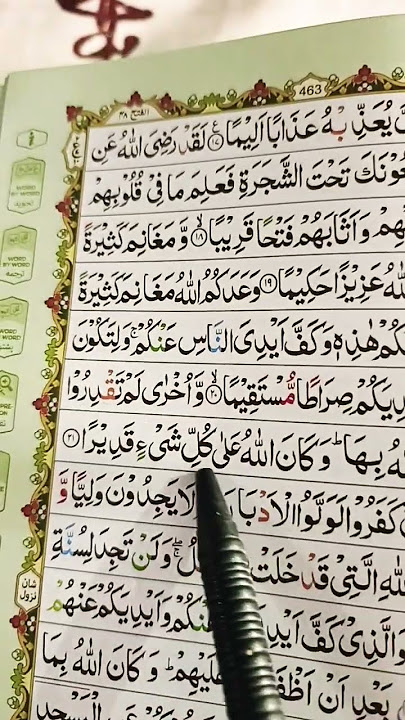 463
الفتح ٤٨
يُعَذِّبْهُ عَذَابًا اَلِيْمًا ١٧ لَقَدْ رَضِیَ اللّٰهُ عَنِ
تَحْتَ الشَّجَرَةِ فَعَلِمَ مَا فِیْ قُلُوْبِهِمْ
وَاَثَابَهُمْ فَتْحًا قَرِيْبًا ١٨ وَّ مَغَانِمَ كَثِيْرَةً
عَزِيْزًا حَكِيْمًا ١٩ وَعَدَكُمُ اللّٰهُ مَغَانِمَ كَثِيْرَةً
هٰذِهٖ وَكَفَّ اَيْدِیَ النَّاسِ عَنْكُمْ ۚ وَلِتَكُوْنَ
صِرَاطًا مُّسْتَقِيْمًا ٢٠ وَّاُخْرٰی لَمْ تَقْدِرُوْا
بِهَا ؕ وَكَانَ اللّٰهُ عَلٰی كُلِّ شَیْءٍ قَدِيْرًا ٢١
كَفَرُوْا لَوَلَّوُا الْاَدْبَا لَا يَجِدُوْنَ وَلِيًّا وَّ
الَّتِیْ قَدْ خَلَتْ وَلَنْ تَجِدَ لِسُنَّةِ
الَّذِیْ كَفَّ وَاَيْدِيَكُمْ عَنْهُمْ
بَعْدِ اَنْ وَكَانَ اللّٰهُ بِمَا
WORD BY WORD
WORD BY WORD
شان نزول